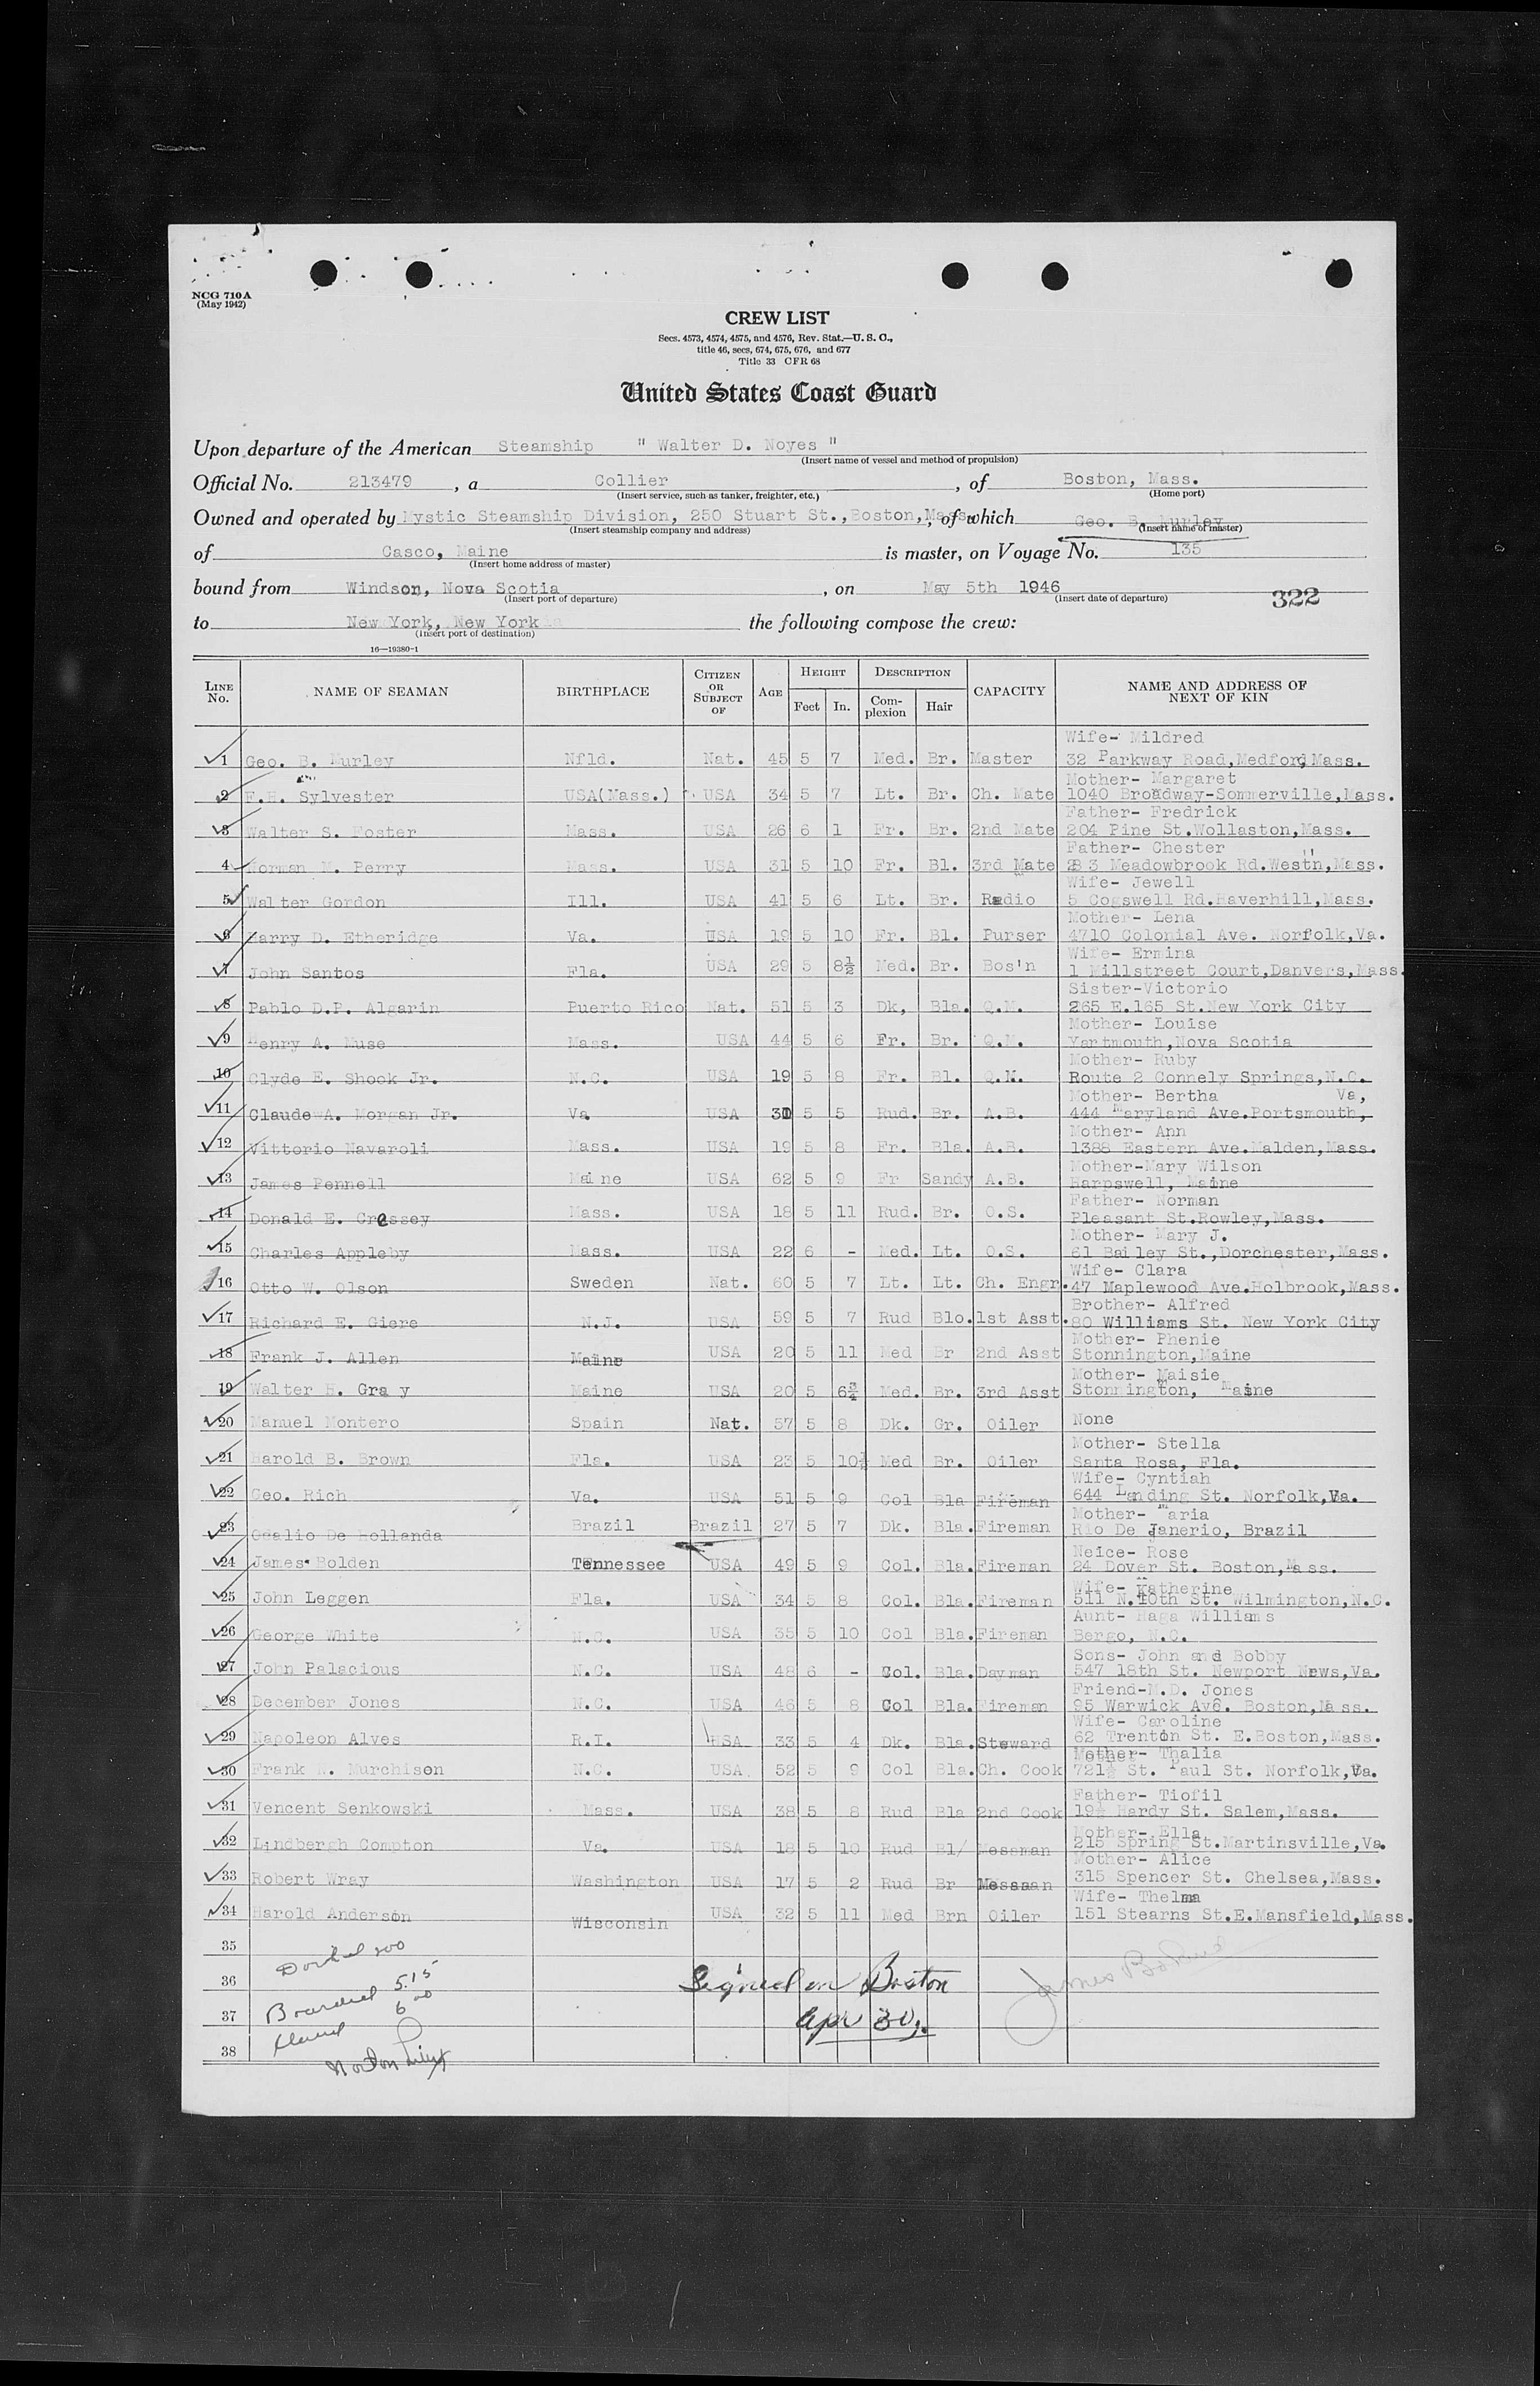 NCG 710A
(May 1942)
CREW LIST
Secs. 4573, 4574, 4575, and 4576, Rev. Stat.—U. S. C.,
title 46, secs, 674, 675, 676, and 677
Title 33 CFR 68
United States Coast Guard
Upon departure of the American Steamship " Walter D. Noyes "
(Insert name of vessel and method of propulsion)
Official No. 213479, a Collier, of Boston, Mass.
(Insert service, such as tanker, freighter, etc.) (Home port)
Owned and operated by Mystic Steamship Division, 250 Stuart St.,Boston,Mass, of which Geo. B. Murley
(Insert steamship company and address) (Insert name of master)
of Casco, Maine is master, on Voyage No. 135
(Insert home address of master)
bound from Windsor, Nova Scotia, on May 5th 1946
(Insert port of departure) (Insert date of departure)
322
to New York, New York the following compose the crew:
(Insert port of destination)
16—19380-1
LINE No. NAME OF SEAMAN BIRTHPLACE CITIZEN OR SUBJECT OF AGE HEIGHT Feet In. DESCRIPTION Complexion Hair CAPACITY NAME AND ADDRESS OF NEXT OF KIN
Wife- Mildred
1 Geo. B. Murley Nfld. Nat. 45 5 7 Med. Br. Master 32 Parkway Road,Medford,Mass.
Mother- Margaret
2 F.H. Sylvester USA(Mass.) USA 34 5 7 Lt. Br. Ch. Mate 1040 Broadway-Sommerville,Mass.
Father- Fredrick
3 Walter S. Foster Mass. USA 26 6 1 Fr. Br. 2nd Mate 204 Pine St.Wollaston,Mass.
Father- Chester
4 Norman M. Perry Mass. USA 31 5 10 Fr. Bl. 3rd Mate 283 Meadowbrook Rd.Westn,Mass.
Wife- Jewell
5 Walter Gordon Ill. USA 41 5 6 Lt. Br. Radio 5 Cogswell Rd.Haverhill,Mass.
Mother- Lena
6 Harry D. Etheridge Va. USA 19 5 10 Fr. Bl. Purser 4710 Colonial Ave. Norfolk,Va.
Wife- Ermina
7 John Santos Fla. USA 29 5 8½ Med. Br. Bos'n 1 Millstreet Court,Danvers,Mass.
Sister-Victorio
8 Pablo D.P. Algarin Puerto Rico Nat. 51 5 3 Dk, Bla. Q.M. 265 E.165 St.New York City
Mother- Louise
9 Henry A. Muse Mass. USA 44 5 6 Fr. Br. Q.M. Yartmouth,Nova Scotia
Mother- Ruby
10 Clyde E. Shook Jr. N.C. USA 19 5 8 Fr. Bl. Q.M. Route 2 Connely Springs,N.C.
Mother- Bertha Va,
11 Claude A. Morgan Jr. Va USA 30 5 5 Rud. Br. A.B. 444 Maryland Ave.Portsmouth,
Mother- Ann
12 Vittorio Navaroli Mass. USA 19 5 8 Fr. Bla. A.B. 1388 Eastern Ave.Malden,Mass.
Mother-Mary Wilson
13 James Pennell Maine USA 62 5 9 Fr Sandy A.B. Harpswell, Maine
Father- Norman
14 Donald E. Cressey Mass. USA 18 5 11 Rud. Br. O.S. Pleasant St.Rowley,Mass.
Mother- Mary J.
15 Charles Appleby Mass. USA 22 6 - Med. Lt. O.S. 61 Bailey St.,Dorchester,Mass.
Wife- Clara
16 Otto W. Olson Sweden Nat. 60 5 7 Lt. Lt. Ch. Engr. 47 Maplewood Ave.Holbrook,Mass.
Brother- Alfred
17 Richard E. Giere N.J. USA 59 5 7 Rud Blo. 1st Asst. 80 Williams St. New York City
Mother- Phenie
18 Frank J. Allen Maine USA 20 5 11 Med Br 2nd Asst Stonnington,Maine
Mother- Maisie
19 Walter H. Gray Maine USA 20 5 6¾ Med. Br. 3rd Asst Stonnington, Maine
20 Manuel Montero Spain Nat. 57 5 8 Dk. Gr. Oiler None
Mother- Stella
21 Harold B. Brown Fla. USA 23 5 10½ Med Br. Oiler Santa Rosa, Fla.
Wife- Cyntiah
22 Geo. Rich Va. USA 51 5 9 Col Bla Fireman 644 Landing St. Norfolk,Va.
Mother- Maria
23 De Hollanda Brazil Brazil 27 5 7 Dk. Bla. Fireman Rio De Janerio, Brazil
Neice- Rose
24 James Bolden Tennessee USA 49 5 9 Col. Bla. Fireman 24 Dover St. Boston,Mass.
Wife- Katherine
25 John Leggen Fla. USA 34 5 8 Col. Bla. Fireman 511 N.10th St. Wilmington,N.C.
Aunt- Haga Williams
26 George White N.C. USA 35 5 10 Col Bla. Fireman Bergo, N.C.
Sons- John and Bobby
27 John Palacious N.C. USA 48 6 - Col. Bla. Dayman 547 18th St. Newport News,Va.
Friend-M.D. Jones
28 December Jones N.C. USA 46 5 8 Col Bla. Fireman 95 Warwick Ave. Boston,Mass.
Wife- Caroline
29 Napoleon Alves R.I. USA 33 5 4 Dk. Bla. Steward 62 Trenton St. E.Boston,Mass.
Mother- Thalia
30 Frank N. Murchison N.C. USA. 52 5 9 Col Bla. Ch. Cook 721½ St. Paul St. Norfolk,Va.
Father- Tiofil
31 Vencent Senkowski Mass. USA 38 5 8 Rud Bla 2nd Cook 19½ Hardy St. Salem,Mass.
Mother- Ella
32 Lindbergh Compton Va. USA 18 5 10 Rud Bl/ Messman 215 Spring St.Martinsville,Va.
Mother- Alice
33 Robert Wray Washington USA 17 5 2 Rud Br Messman 315 Spencer St. Chelsea,Mass.
Wife- Thelma
34 Harold Anderson Wisconsin USA 32 5 11 Med Brn Oiler 151 Stearns St.E.Mansfield,Mass.
35
Docked 200
36 Signed on Boston
Boarded 5.15
37 600 Apr 30.
38
Norton Lilly